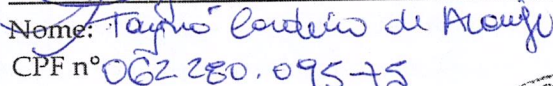 Nome: Tayná Cordeiro de Araujo
CPF nº 062.280.095-75